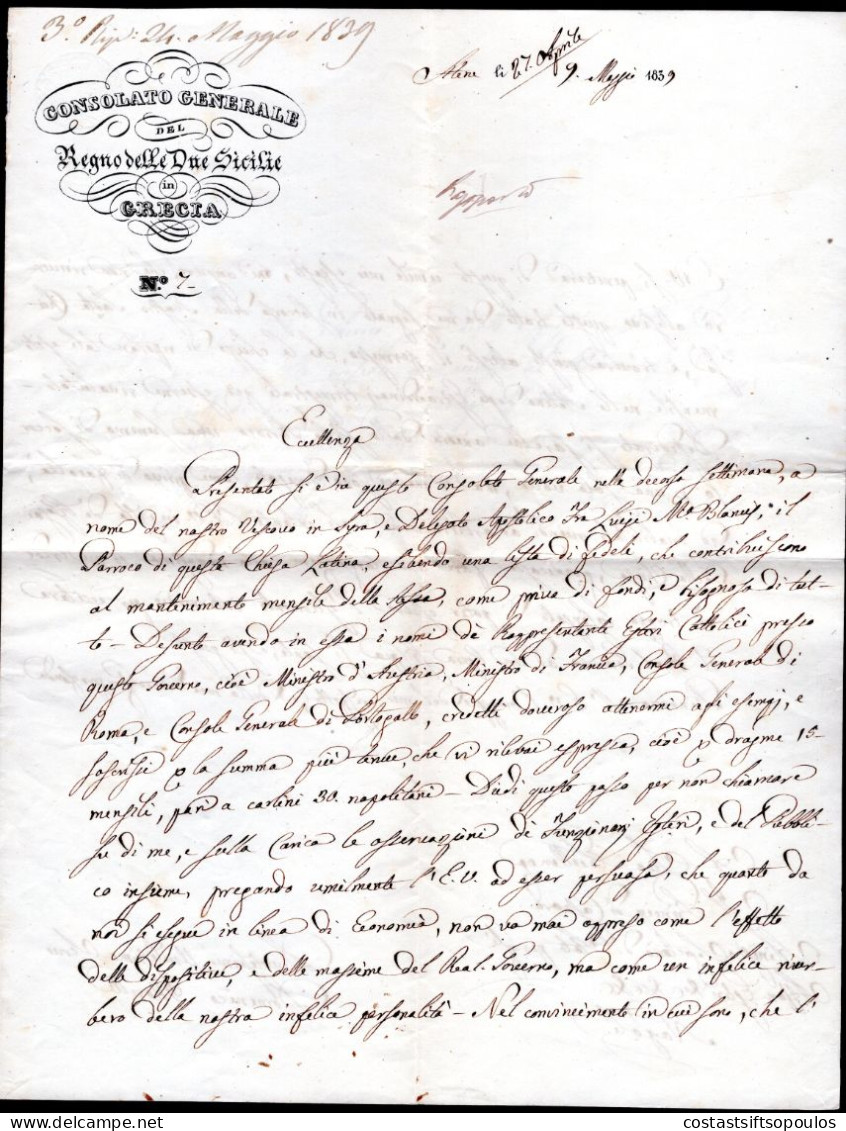 3.° Rip: 24. Maggio 1839
Atene li 27. Aprile
9. Maggio 1839
CONSOLATO GENERALE
DEL
Regno delle Due Sicilie
in
GRECIA
N.° 7
Rapporto
Eccellenza
Presentato si è in questo Consolato Generale nella decorsa settimana, a
nome del nostro Vescovo in Syra, e Delegato Apostolico Fra Luigi M.a Blancis, il
Parroco di questa Chiesa Latina, esibendo una lista di fedeli, che contribuiscono
al mantenimento mensile della, come priva di fondi, e bisognosa di tut-
to - Desunto avendo in essa i nomi dè Rappresentanti Esteri Cattolici presso
questo Governo, cioè Ministro d'Austria, Ministro di Francia, Console Generale di
Roma, e Console Generale di Portogallo, credetti doveroso attenermi agli esempj, e
soscrissi p la summa più tenue, che vi rilevai espressa, cioè p dragme 15-
mensili, pari a carlini 30. napolitani - Diedi questo passo per non chiamare
su di me, e sulla Carica le osservazioni di Funzionarj Esteri, e del Pubbli-
co insieme, pregando umilmente l'E.V. ad esser persuasa, che quanto da
noi si esegue in linea di Economia, non va mai appreso come l'effetto
delle dispositive, e delle massime del Real. Governo, ma come un infelice river-
bero della nostra infelice personalità - Nel convincimento in cui sono, che l'
DELCAMPE.NET
costastsiftsopoulos